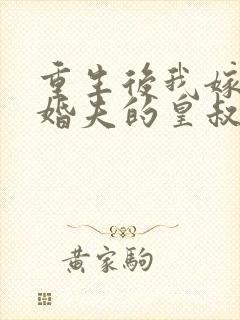 重生後我嫁
婚夫的皇叔
黃家駒